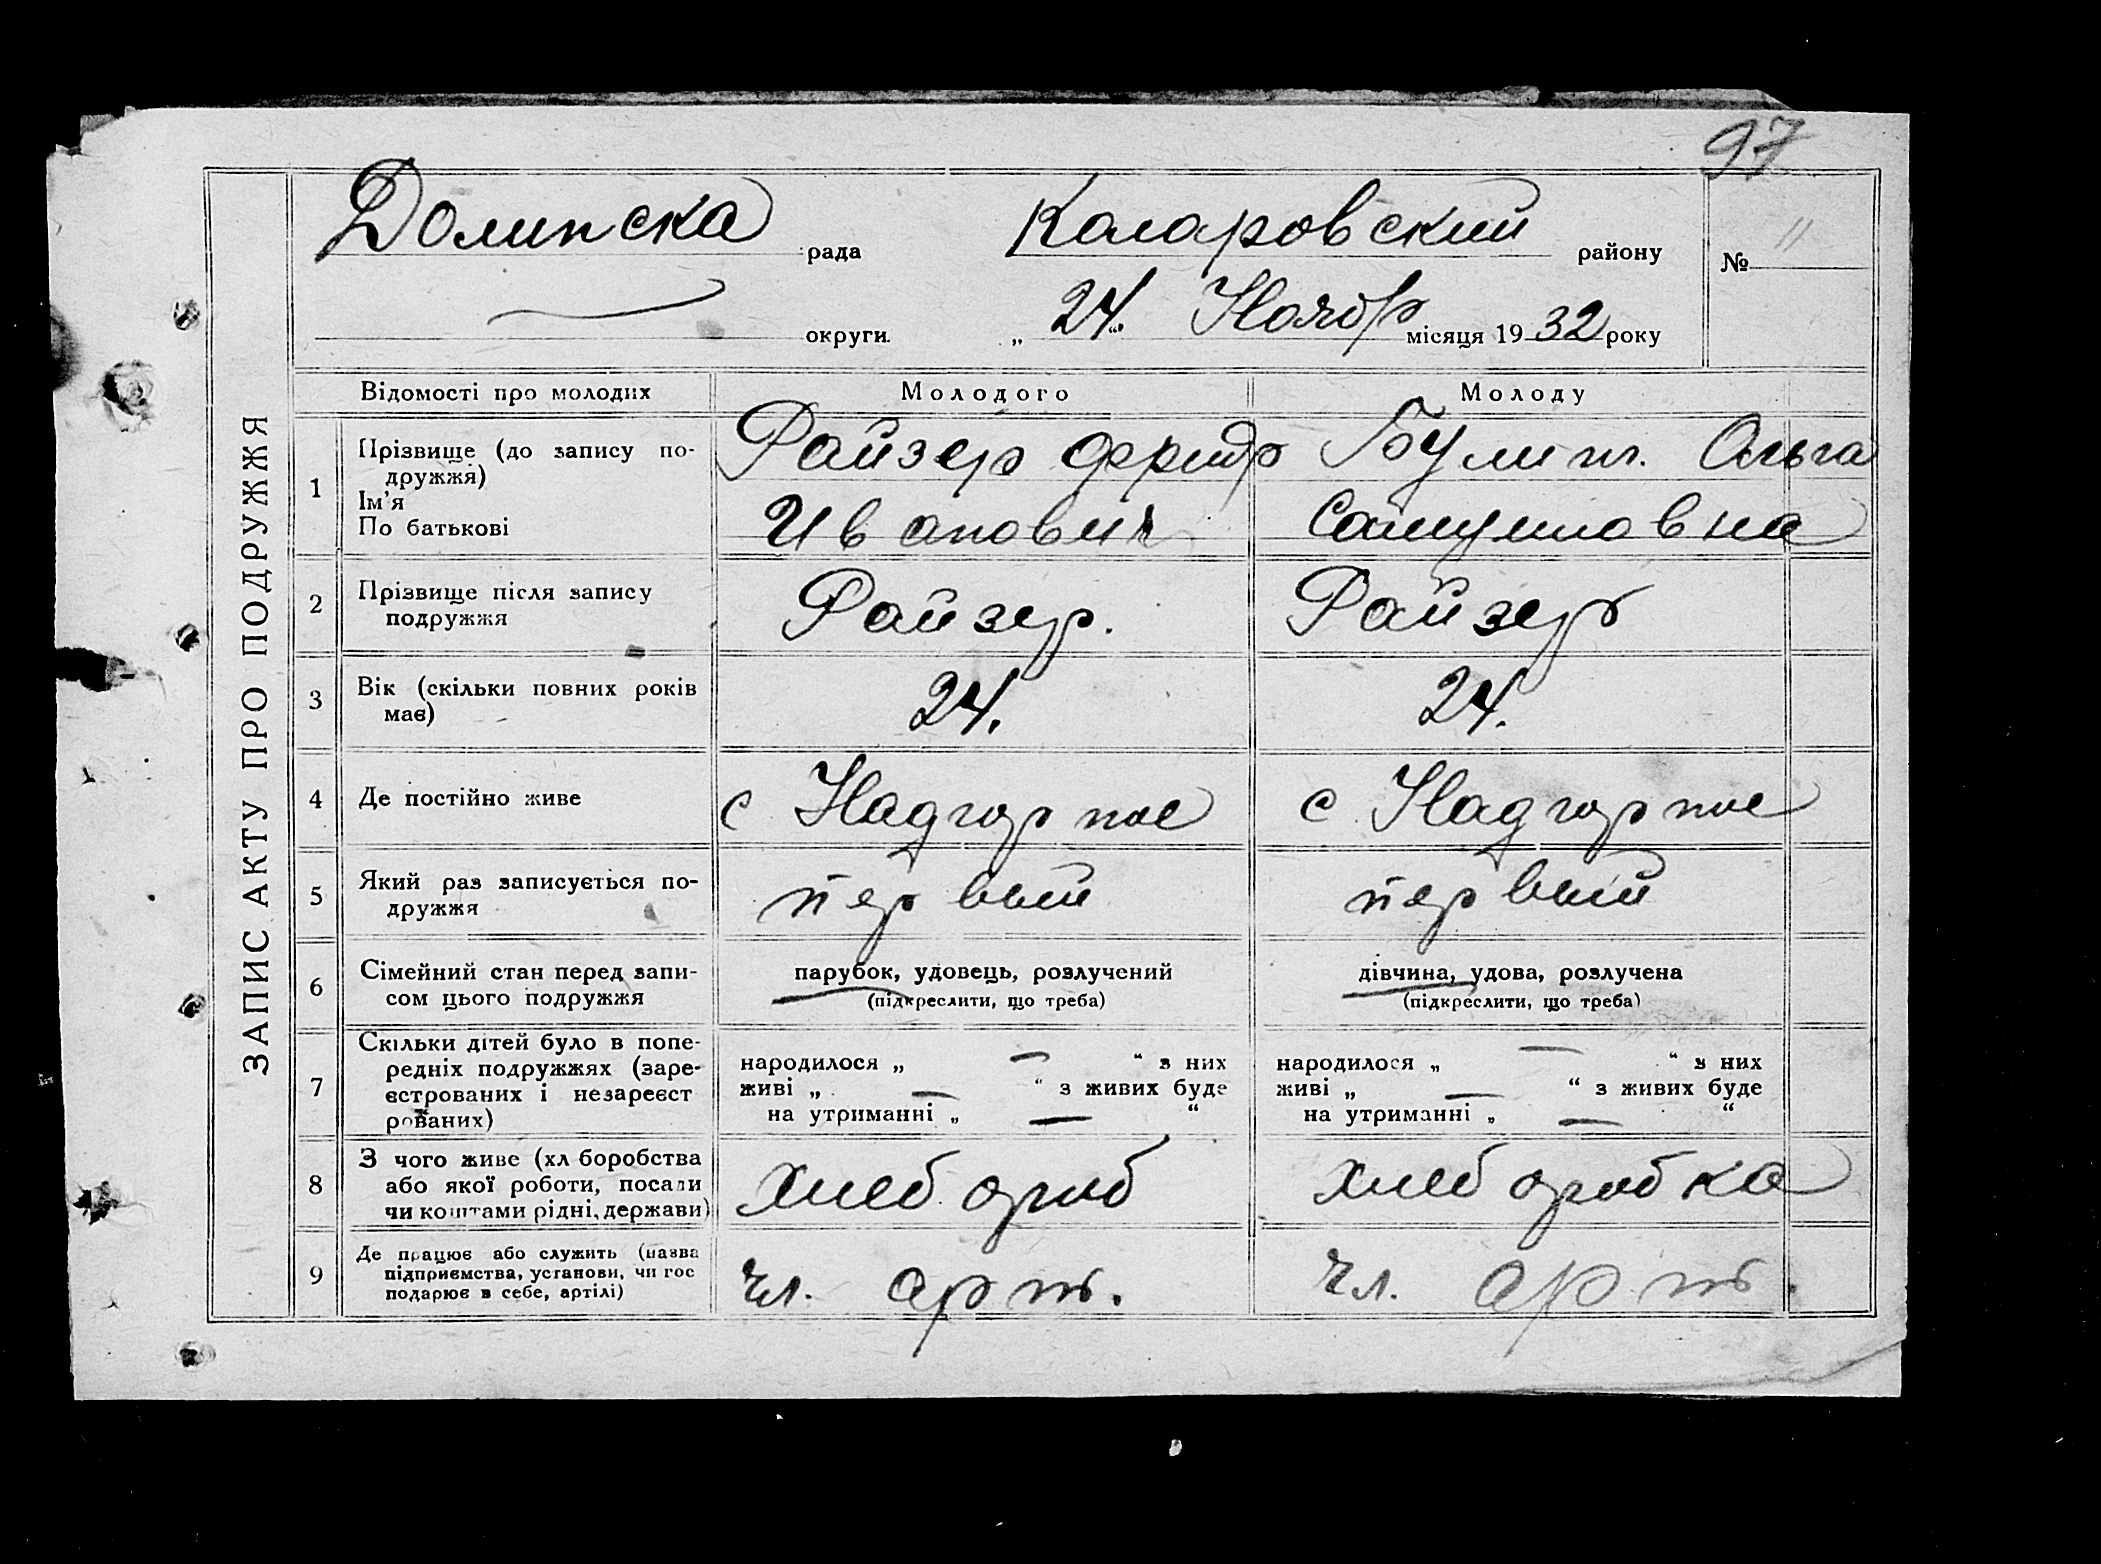 97
Долинска рада Коларовский району № 11
округи „ 24 “Ноябр місяця 1932 року
ЗАПИС АКТУ ПРО ПОДРУЖЖЯ
Відомості про молодих Молодого Молоду
1 Прізвище (до запису по-
дружжя)
Ім’я
По батькові
Райзер Фридр
Иванович
Булит. Ольга
Самуиловна
2 Прізвище після запису
подружжя
Райзер. Райзер
3 Вік (скільки повних років
має)
24. 24.
4 Де постійно живе с Надгорное с Надгорное
5 Який раз записується по-
дружжя
первый первый
6 Сімейний стан перед запи-
сом цього подружжя
парубок, удовець, розлучений
(підкреслити, що треба)
дівчина, удова, розлучена
(підкреслити, що треба)
7 Скільки дітей було в попе-
редніх подружжях (заре-
єстрованих і незареєст
рованих)
народилося „ — “ з них
живі „ — “ з живих буде
на утриманні „ — “
народилося „ — “ з них
живі „ — “ з живих буде
на утриманні „ — “
8 З чого живе (хл боробства
або якої роботи, посади
чи коштами рідні, держави)
хлебороб хлеборобка
9 Де працює або служить (назва
підприємства, установи, чи гос
подарює в себе, артілі)
чл. арт. чл. арт.